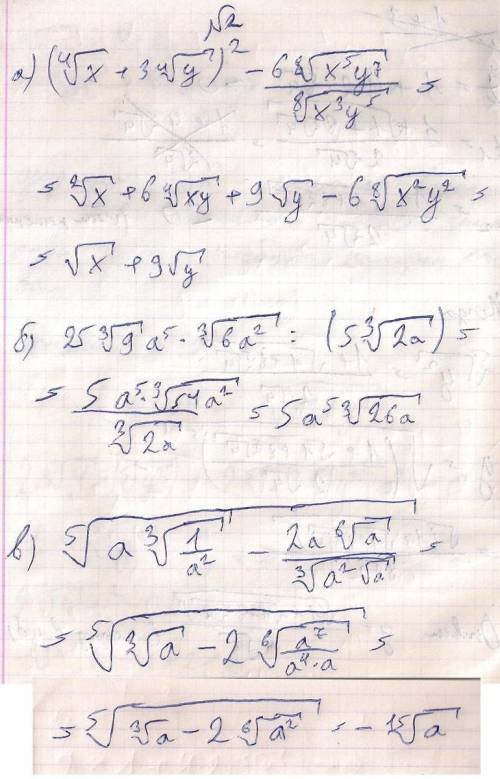 №2
а) (∜x + 3∜y)² − 6⁸√(x⁵y⁷) / ⁸√(x³y⁵) =
= ²√x + 6∜(xy) + 9√y − 6⁸√(x²y²) =
= √x + 9√y
б) 25∛9 a⁵ · ∛(6a²) : (5∛(2a)) =
= 5a⁵·∛(54a²) / ∛(2a) = 5a⁵∛(26a)
в) ⁵√(a∛(1/a²) − 2a⁶√a / ∛(a²√a)) =
= ⁵√(∛a − 2⁶√(a⁷/(a⁴·a))) =
= ⁵√(∛a − 2⁶√(a²)) = −¹⁵√a